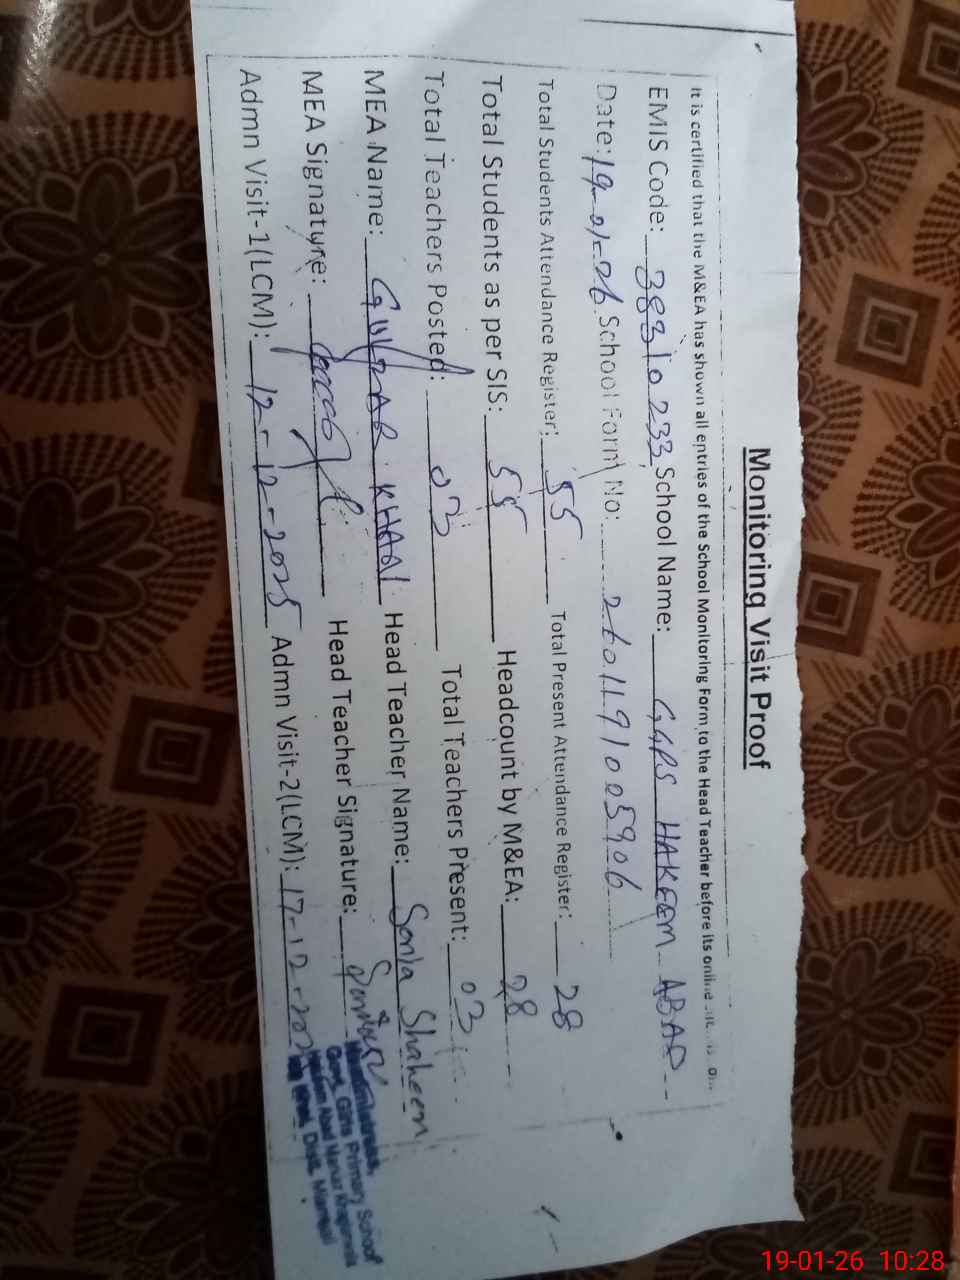 Monitoring Visit Proof
It is certified that the M&EA has shown all entries of the School Monitoring Form to the Head Teacher before its online
EMIS Code: 38310233 School Name: GGPS HAKEEM ABAD
Date: 19-01-26 School Form No: 2601191005906
Total Students Attendance Register: 55 Total Present Attendance Register: 28
Total Students as per SIS: 55 Headcount by M&EA: 28
Total Teachers Posted: 03 Total Teachers Present: 03
MEA Name: Head Teacher Name: Sonia Shaheen
MEA Signature: Head Teacher Signature:
Admn Visit-1(LCM): 12-12-2025 Admn Visit-2(LCM): 17-12-20
Headmistress
Govt. Girls Primary School
Abad
Distt. Mianwali
19-01-26 10:28